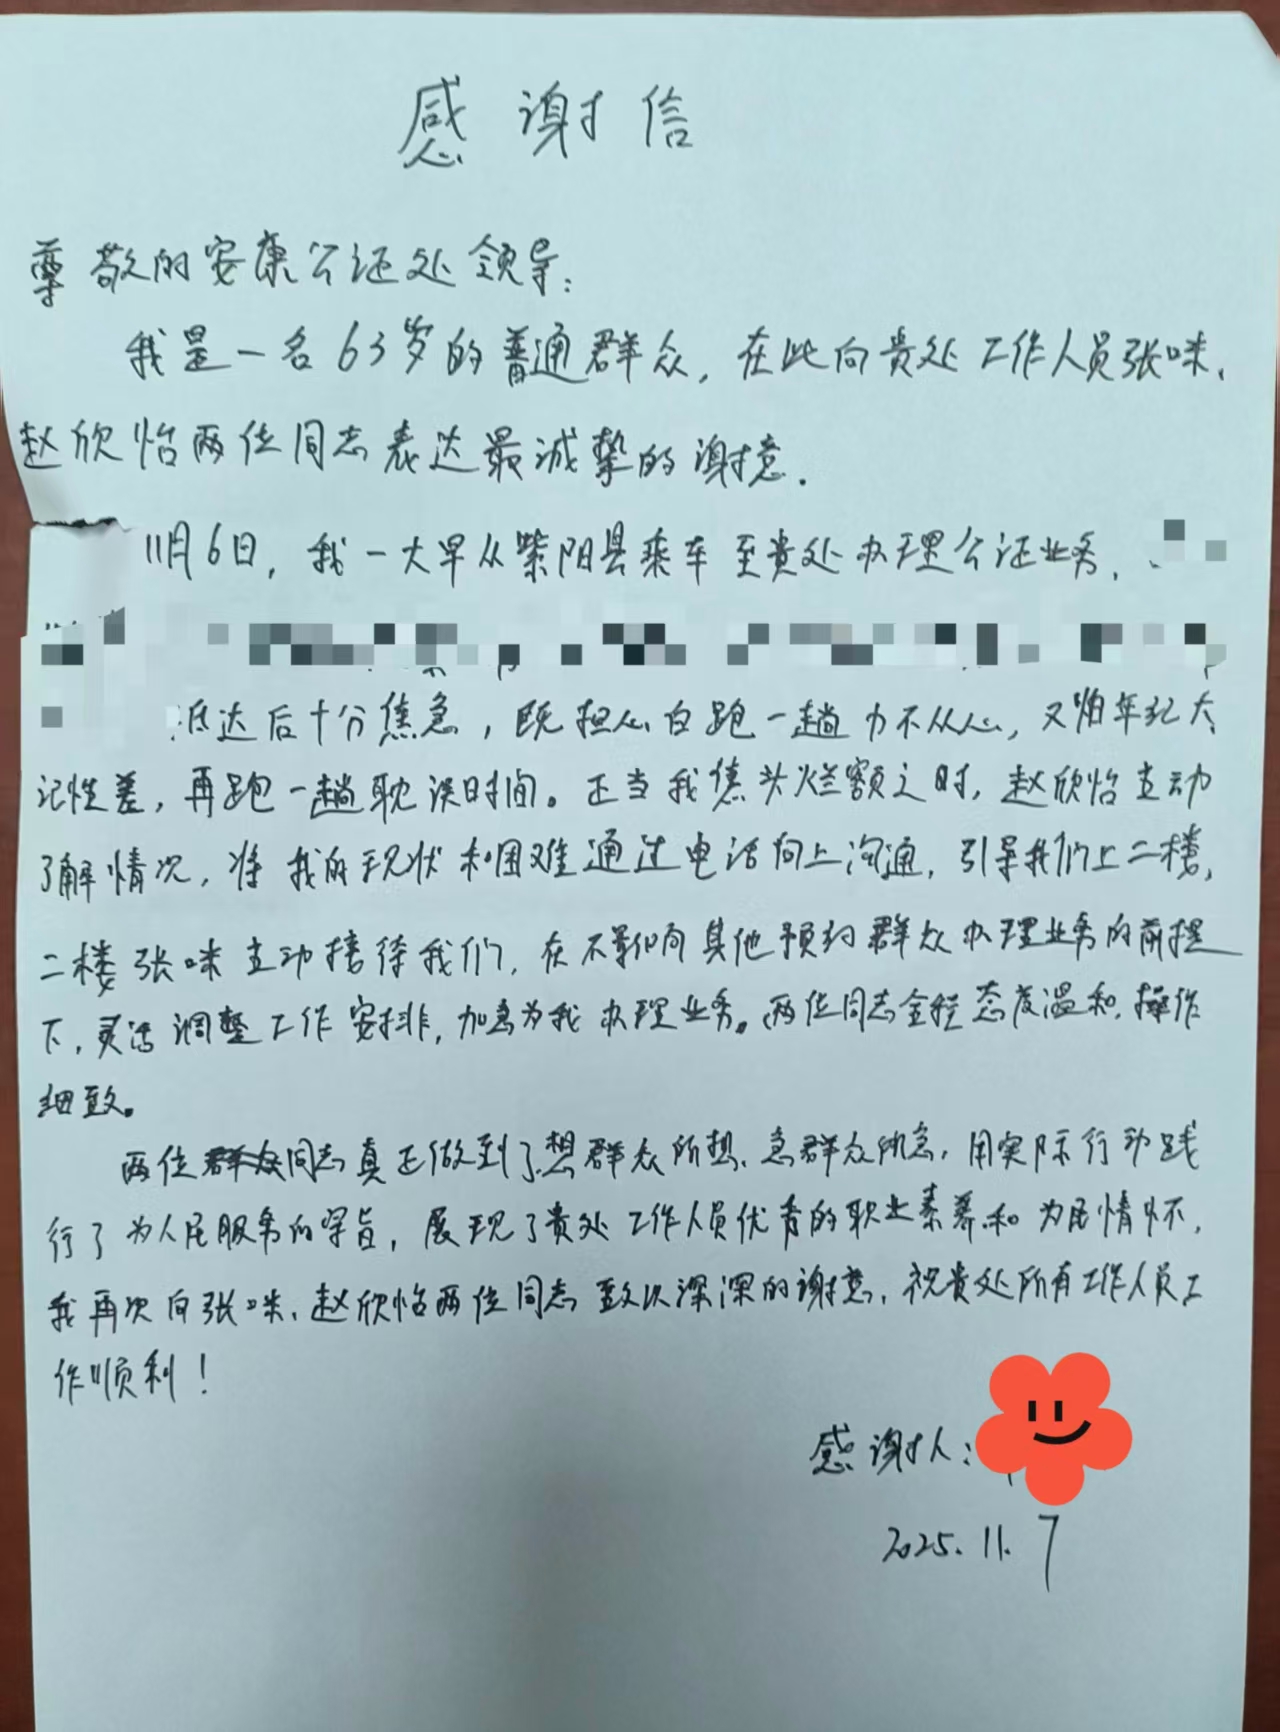 感谢信
尊敬的安康公证处领导:
我是一名63岁的普通群众,在此向贵处工作人员张咪、
赵欣怡两位同志表达最诚挚的谢意.
11月6日,我一大早从紫阳县乘车至贵处办理公证业务,
抵达后十分焦急,既担心白跑一趟力不从心,又怕年纪大、
记性差,再跑一趟耽误时间。正当我焦头烂额之时,赵欣怡主动
了解情况,将我的现状和困难通过电话向上沟通,引导我们上二楼,
二楼张咪主动接待我们,在不影响其他预约群众办理业务的前提
下,灵活调整工作安排,加急为我办理业务。两位同志全程态度温和,操作
细致。
两位同志真正做到了想群众所想、急群众所急,用实际行动践
行了为人民服务的宗旨,展现了贵处工作人员优秀的职业素养和为民情怀,
我再次向张咪、赵欣怡两位同志致以深深的谢意,祝贵处所有工作人员工
作顺利!
感谢人:
2025.11.7